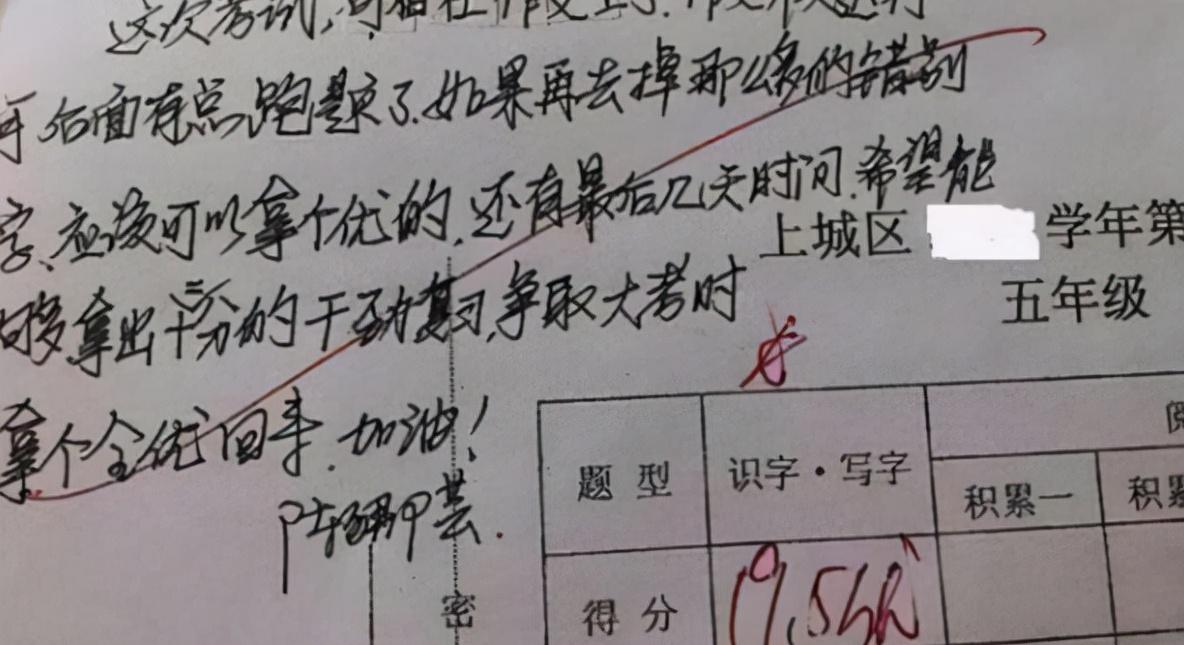 这次考试,可惜在作文上了.作文
后面有点跑题了.如果再去掉那么多的错别
字、应该可以拿个优的.还有最后几天时间.希望能
够拿出十二分的干劲复习,争取大考时
拿个全优回来.加油!
上城区 学年第
五年级
题 型
识字·写字
积累一
积累
得 分
19.5
密